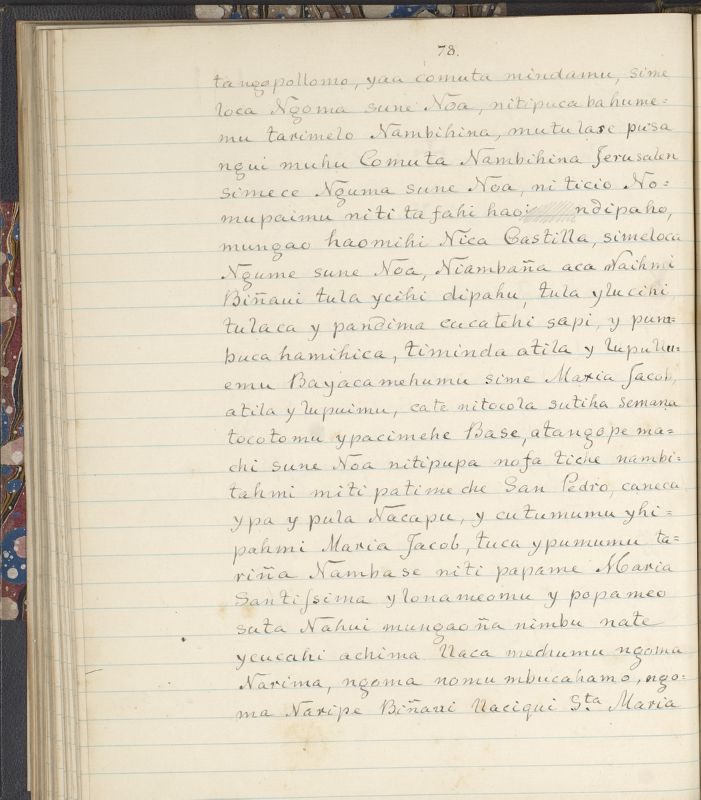 78.
tangopollomo, yau comuta mindamu, sime
loca Ngoma sune Noa, nitipuca bahume=
mu tarimelo Nambihina, mutulasi pusa
ngui muhu Comuta Nambihina Jerusalen
simece Nguma sune Noa, ni ticio No=
mupaimu niti tafahi hao ndipaho,
mungao haomihi Nica Castilla, simeloca
Ngume sune Noa, Niambaña aca Naihmi
Biñaui tula ycihi dipahu, tula ylucihi,
tulaca y pandima cucatehi sapi, y pum=
buca hamihica, timinda atila y lupulu=
emu Bayacamehumu sime Maria Jacob,
atila ylupuimu, cate nitocola sutiha semana
tocotomu ypacimehe Base, atangope ma=
chi sune Noa nitipupa nofa tiche nambi=
tahmi miti patimeche San Pedro, caneca
ypa y pula Nacapu, y cutumumu yhi=
pahmi Maria Jacob, tuca ypumumu ta=
riña Nambase niti papame Maria
Santissima ylonameomu y popameo
suta Nahui mungaoña nimbu nate
ycucahi achima Uaca mechumu ngoma
Narima, ngoma nomu mbucahamo, ngo=
ma Naripe Biñaui Uaciqui Sta Maria